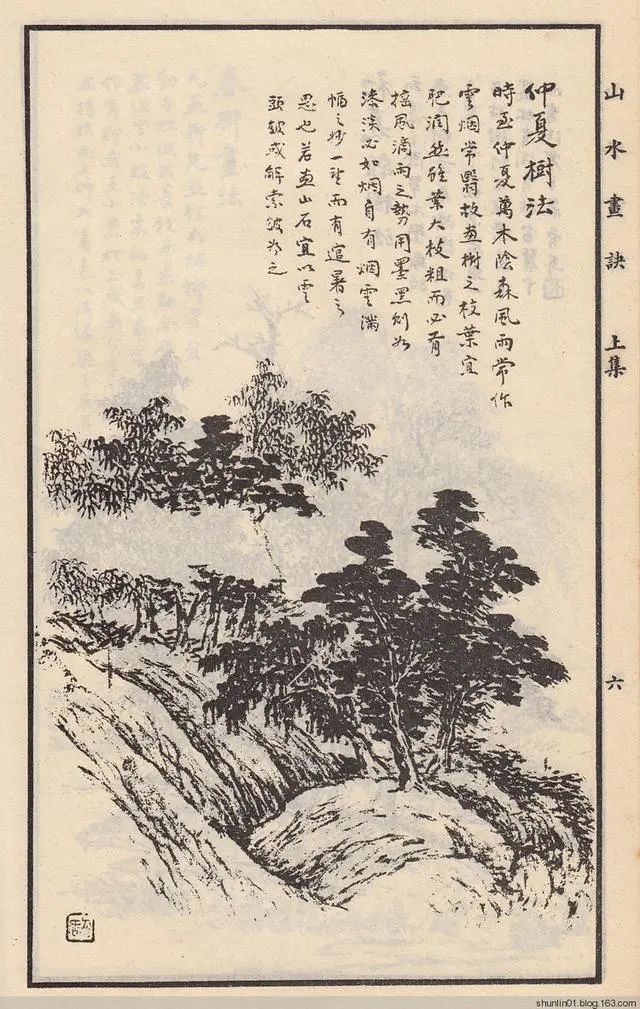 山水畫訣 上集
六
仲夏樹法
時至仲夏萬木陰森風雨常作
雲烟常翳故畫樹之枝葉宜
肥潤然雖葉大枝粗而必有
搖風滴雨之勢用墨黑則如
漆淡必如烟自有烟雲滿
幅之妙一望而有逭暑之
思也若畫山石宜以雲
頭皴或解索皴為之
shunlin01.blog.163.com